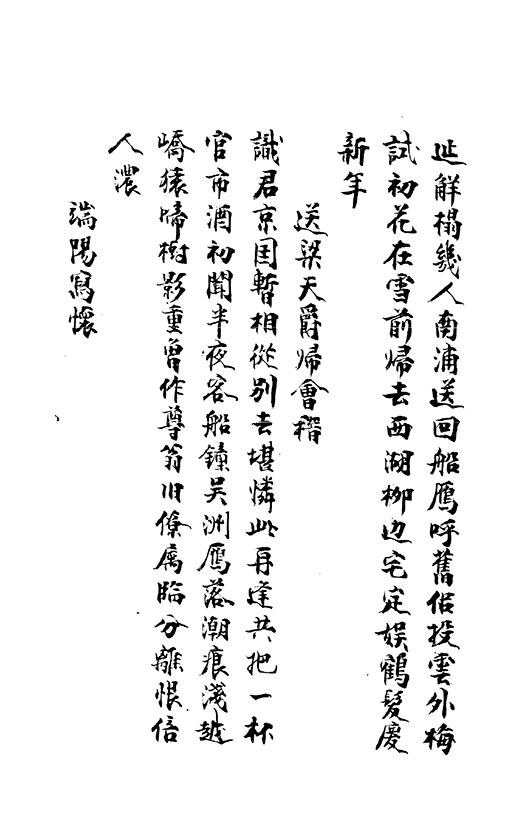 延解榻幾人南浦送回船鴈呼舊侶投雲外梅
試初花在雪前帰去西湖柳边宅定娱鶴髮慶
新年
送梁天爵帰會稽
識君京国暫相從别去堪憐此再逢共把一杯
官市酒初聞半夜客船鐘吴洲鴈落潮痕淺越
嶠猿啼樹影重曽作尊翁旧僚属臨分離恨倍
人濃
端陽寫懷